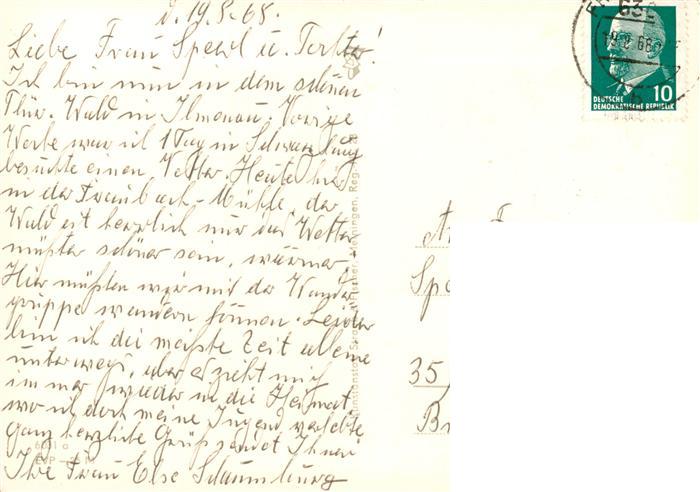 d. 19.8.68.
Liebe Frau Speerl u. Tochter!
Ich bin nun in dem schönen
Thür. Wald in Ilmenau. Vorige
Woche war ich 1 Tag in Schwarzburg
besuchte einen Vetter. Heute hier
in der Fraubach-Mühle, der
Wald ist herrlich nur das Wetter
müßte schöner sein, wärmer.
Hier müßten wir mit der Wander
gruppe wandern können. Leider
bin ich die meiste Zeit alleine
unterwegs, aber es zieht mich
immer wieder in die Heimat,
wo ich doch meine Jugend verlebte
Ganz herzliche Grüße sendet Ihnen
Ihre Frau Else Schaumburg
63
19.8.68
10
DEUTSCHE
DEMOKRATISCHE REPUBLIK
35